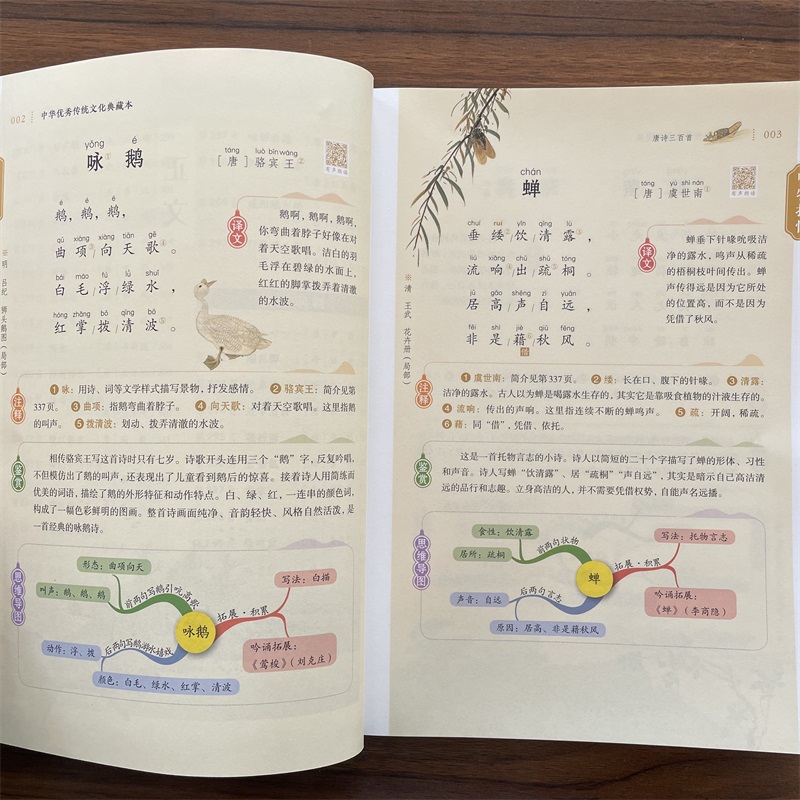 002
中华优秀传统文化典藏本
yǒng é
咏 鹅
táng luò bīn wáng
[唐] 骆宾王②
有声朗读
é é é
鹅,鹅,鹅,
qū xiàng xiàng tiān gē
曲项③/向天歌④。
bái máo fú lǜ shuǐ
白毛/浮/绿水,
hóng zhǎng bō qīng bō
红掌/拨/清波⑤。
译文
鹅啊,鹅啊,鹅啊,
你弯曲着脖子好像在对
着天空歌唱。洁白的羽
毛浮在碧绿的水面上,
红红的脚掌拨弄着清澈
的水波。
※明 吕纪 狮头鹅图(局部)
注释
①咏:用诗、词等文学样式描写景物,抒发感情。 ②骆宾王:简介见第
337页。 ③曲项:指鹅弯曲着脖子。 ④向天歌:对着天空歌唱。这里指鹅
的叫声。 ⑤拨清波:划动、拨弄清澈的水波。
鉴赏
相传骆宾王写这首诗时只有七岁。诗歌开头连用三个“鹅”字,反复吟唱,
不但模仿出了鹅的叫声,还表现出了儿童看到鹅后的惊喜。接着诗人用简练而
优美的词语,描绘了鹅的外形特征和动作特点。白、绿、红,一连串的颜色词,
构成了一幅色彩鲜明的图画。整首诗画面纯净、音韵轻快、风格自然活泼,是
一首经典的咏鹅诗。
思维导图
形态:曲项向天
叫声:鹅、鹅、鹅
前两句写鹅引吭高歌
动作:浮、拨
后两句写鹅游水嬉戏
颜色:白毛、绿水、红掌、清波
咏鹅
拓展·积累
写法:白描
吟诵拓展:
《莺梭》(刘克庄)
唐诗三百首
003
chán
蝉
táng yú shì nán
[唐] 虞世南①
有声朗读
chuí ruí yǐn qīng lù
垂緌②/饮/清露③,
liú xiǎng chū shū tóng
流响④/出/疏⑤桐。
jū gāo shēng zì yuǎn
居高/声/自远,
fēi shì jiè qiū fēng
非是/藉⑥/秋风。
借
译文
蝉垂下针喙吮吸洁
净的露水,鸣声从稀疏
的梧桐枝叶间传出。蝉
声传得远是因为它所处
的位置高,而不是因为
凭借了秋风。
※清 王武 花卉册(局部)
注释
①虞世南:简介见第337页。 ②緌:长在口、腹下的针喙。 ③清露:
洁净的露水。古人以为蝉是喝露水生存的,其实它是靠吸食植物的汁液生存的。
④流响:传出的声响。这里指连续不断的蝉鸣声。 ⑤疏:开阔,稀疏。
⑥藉:同“借”,凭借、依托。
鉴赏
这是一首托物言志的小诗。诗人以简短的二十个字描写了蝉的形体、习性
和声音。诗人写蝉“饮清露”、居“疏桐”“声自远”,其实是暗示自己高洁清
远的品行和志趣。立身高洁的人,并不需要凭借权势,自能声名远播。
思维导图
食性:饮清露
居所:疏桐
前两句状物
声音:自远
后两句言志
原因:居高、非是藉秋风
蝉
拓展·积累
写法:托物言志
吟诵拓展:
《蝉》(李商隐)